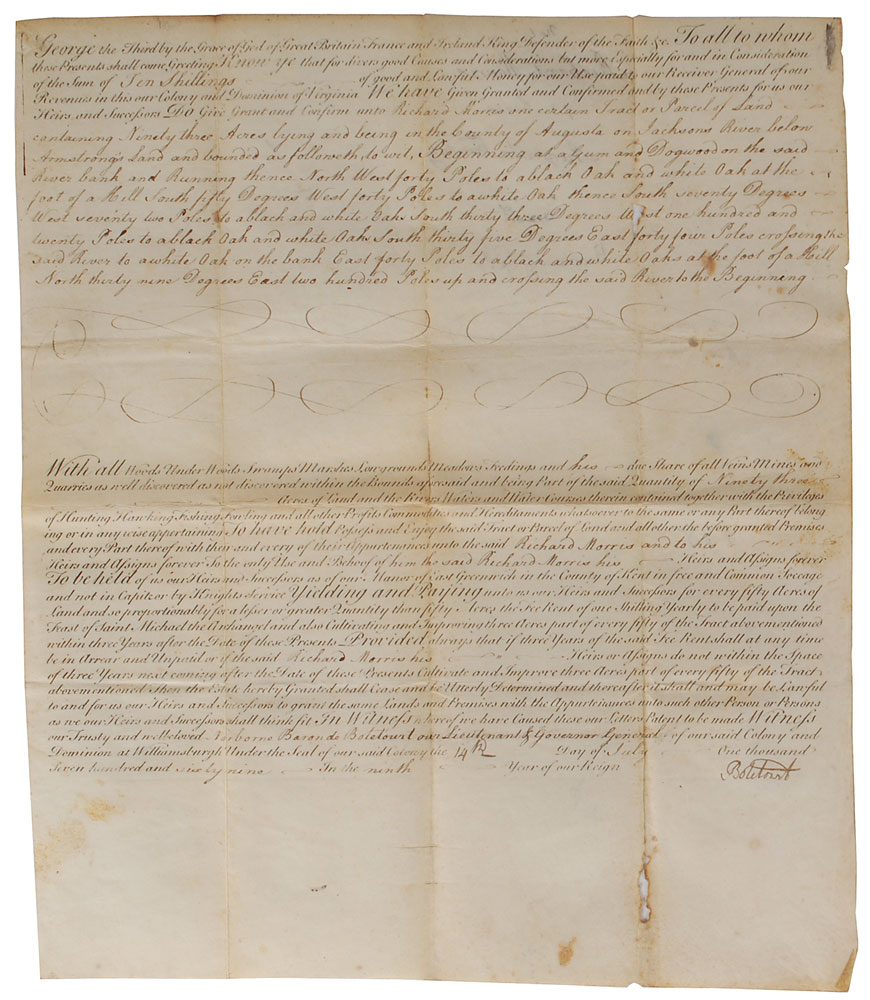 George the Third by the Grace of God of Great Britain France and Ireland King Defender of the Faith &c. To all to whom
these Presents shall come Greeting Know ye that for divers good Causes and Considerations but more Especially for and in Consideration
of the Sum of Ten Shillings of good and Lawful Money for our Use paid to our Receiver General of our
Revenues in this our Colony and Dominion of Virginia We have Given Granted and Confirmed and by these Presents for us our
Heirs and Successors Do Give Grant and Confirm unto Richard Morris one certain Tract or Parcel of Land
containing Ninety three Acres lying and being in the County of Augusta on Jacksons River below
Armstrong's Land and bounded as followeth to wit, Beginning at a Gum and Dogwood on the said
River bank and Running thence North West forty Poles to a black Oak and white Oak at the
foot of a Hill South fifty Degrees West forty Poles to a white Oak thence South seventy Degrees
West seventy two Poles to a black and white Oak South thirty three Degrees West one hundred and
twenty Poles to a black Oak and white Oak South thirty five Degrees East forty four Poles crossing the
said River to a white Oak on the bank East forty Poles to a black and white Oaks at the foot of a Hill
North thirty nine Degrees East two hundred Poles up and crossing the said River to the Beginning
With all Woods Under Woods Swamps Marshes Lowgrounds Meadows Feedings and his due Share of all Veins Mines and
Quarries as well discovered as not discovered within the Bounds aforesaid and being Part of the said Quantity of Ninety three
Acres of Land and the Rivers Waters and Water Courses therein contained together with the Privileges
of Hunting Hawking Fishing Fowling and all other Profits Commodities and Hereditaments whatsoever to the same or any Part thereof belong
ing or in any wise appertaining To have hold Possess and Enjoy the said Tract or Parcel of Land and all other the before granted Premises
and every Part thereof with their and every of their Appurtenances unto the said Richard Morris and to his
Heirs and Assigns forever To the only Use and Behoof of him the said Richard Morris his Heirs and Assigns forever
To be held of us our Heirs and Successors as of our Manor of East Greenwich in the County of Kent in free and Common Soccage
and not in Capite or by Knights Service Yielding and Paying unto us our Heirs and Successors for every fifty Acres of
Land and so proportionably for a lesser or greater Quantity than fifty Acres the Fee Rent of one Shilling Yearly to be paid upon the
Feast of Saint Michael the Archangel and also Cultivating and Improving three Acres part of every fifty of the Tract abovementioned
within three Years after the Date of these Presents Provided always that if three Years of the said Fee Rent shall at any time
be in Arrear and Unpaid or if the said Richard Morris his Heirs or Assigns do not within the Space
of three Years next coming after the Date of these Presents Cultivate and Improve three Acres part of every fifty of the Tract
abovementioned Then the Estate hereby Granted shall Cease and be Utterly Determined and thereafter it shall and may be Lawful
to and for us our Heirs and Successors to grant the same Lands and Premises with the Appurtenances unto such other Person or Persons
as we our Heirs and Successors shall think fit In Witness whereof we have Caused these our Letters Patent to be made Witness
our Trusty and welbeloved Norborne Baron de Botetourt our Lieutenant & Governor General of our said Colony and
Dominion at Williamsburgh Under the Seal of our said Colony the 14th Day of July One thousand
Seven hundred and sixty nine In the ninth Year of our Reign
Botetourt